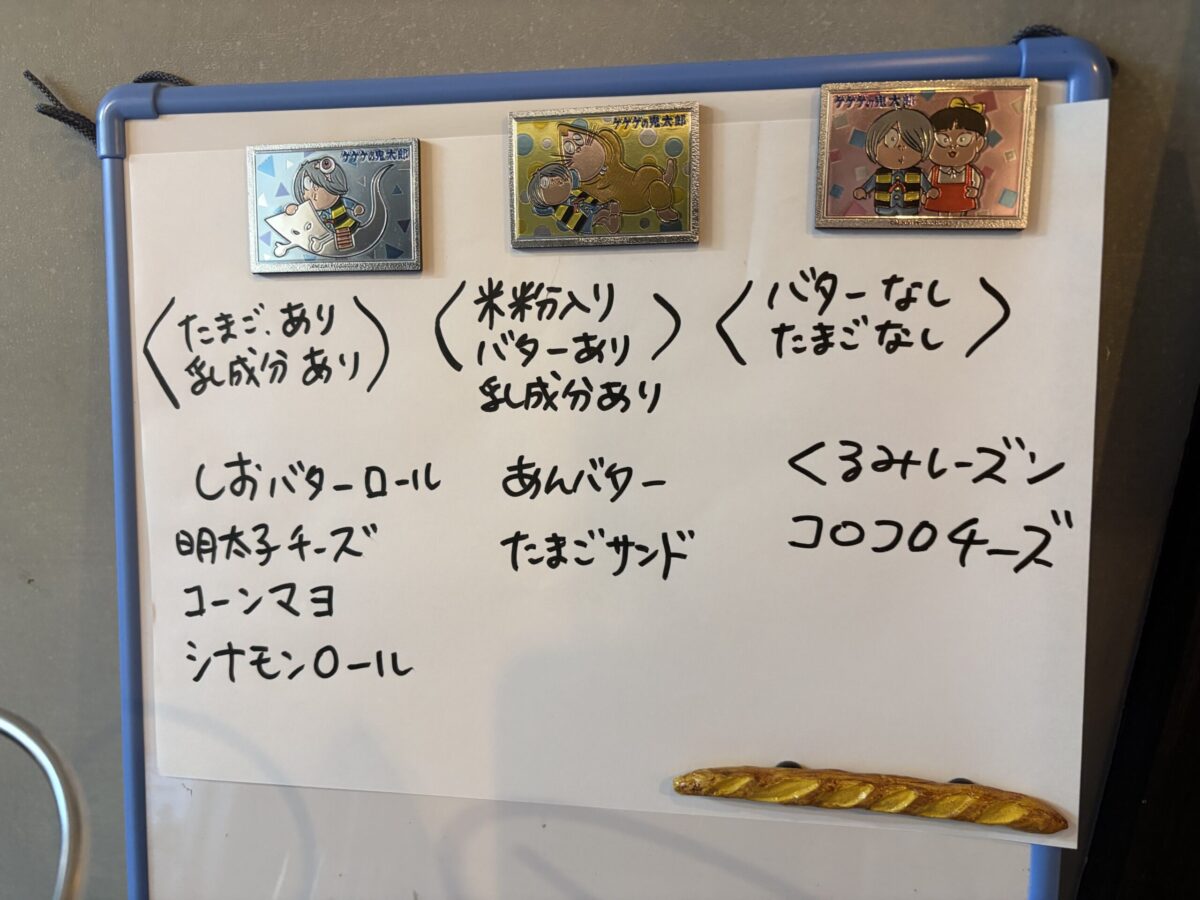 ゲゲゲの鬼太郎
ゲゲゲの鬼太郎
ゲゲゲの鬼太郎
〈たまご、あり
乳成分 あり〉
〈米粉入り
バターあり〉
乳成分あり
〈バターなし
たまごなし〉
しおバターロール
明太子チーズ
コーンマヨ
シナモンロール
あんバター
たまごサンド
くるみレーズン
コロコロチーズ